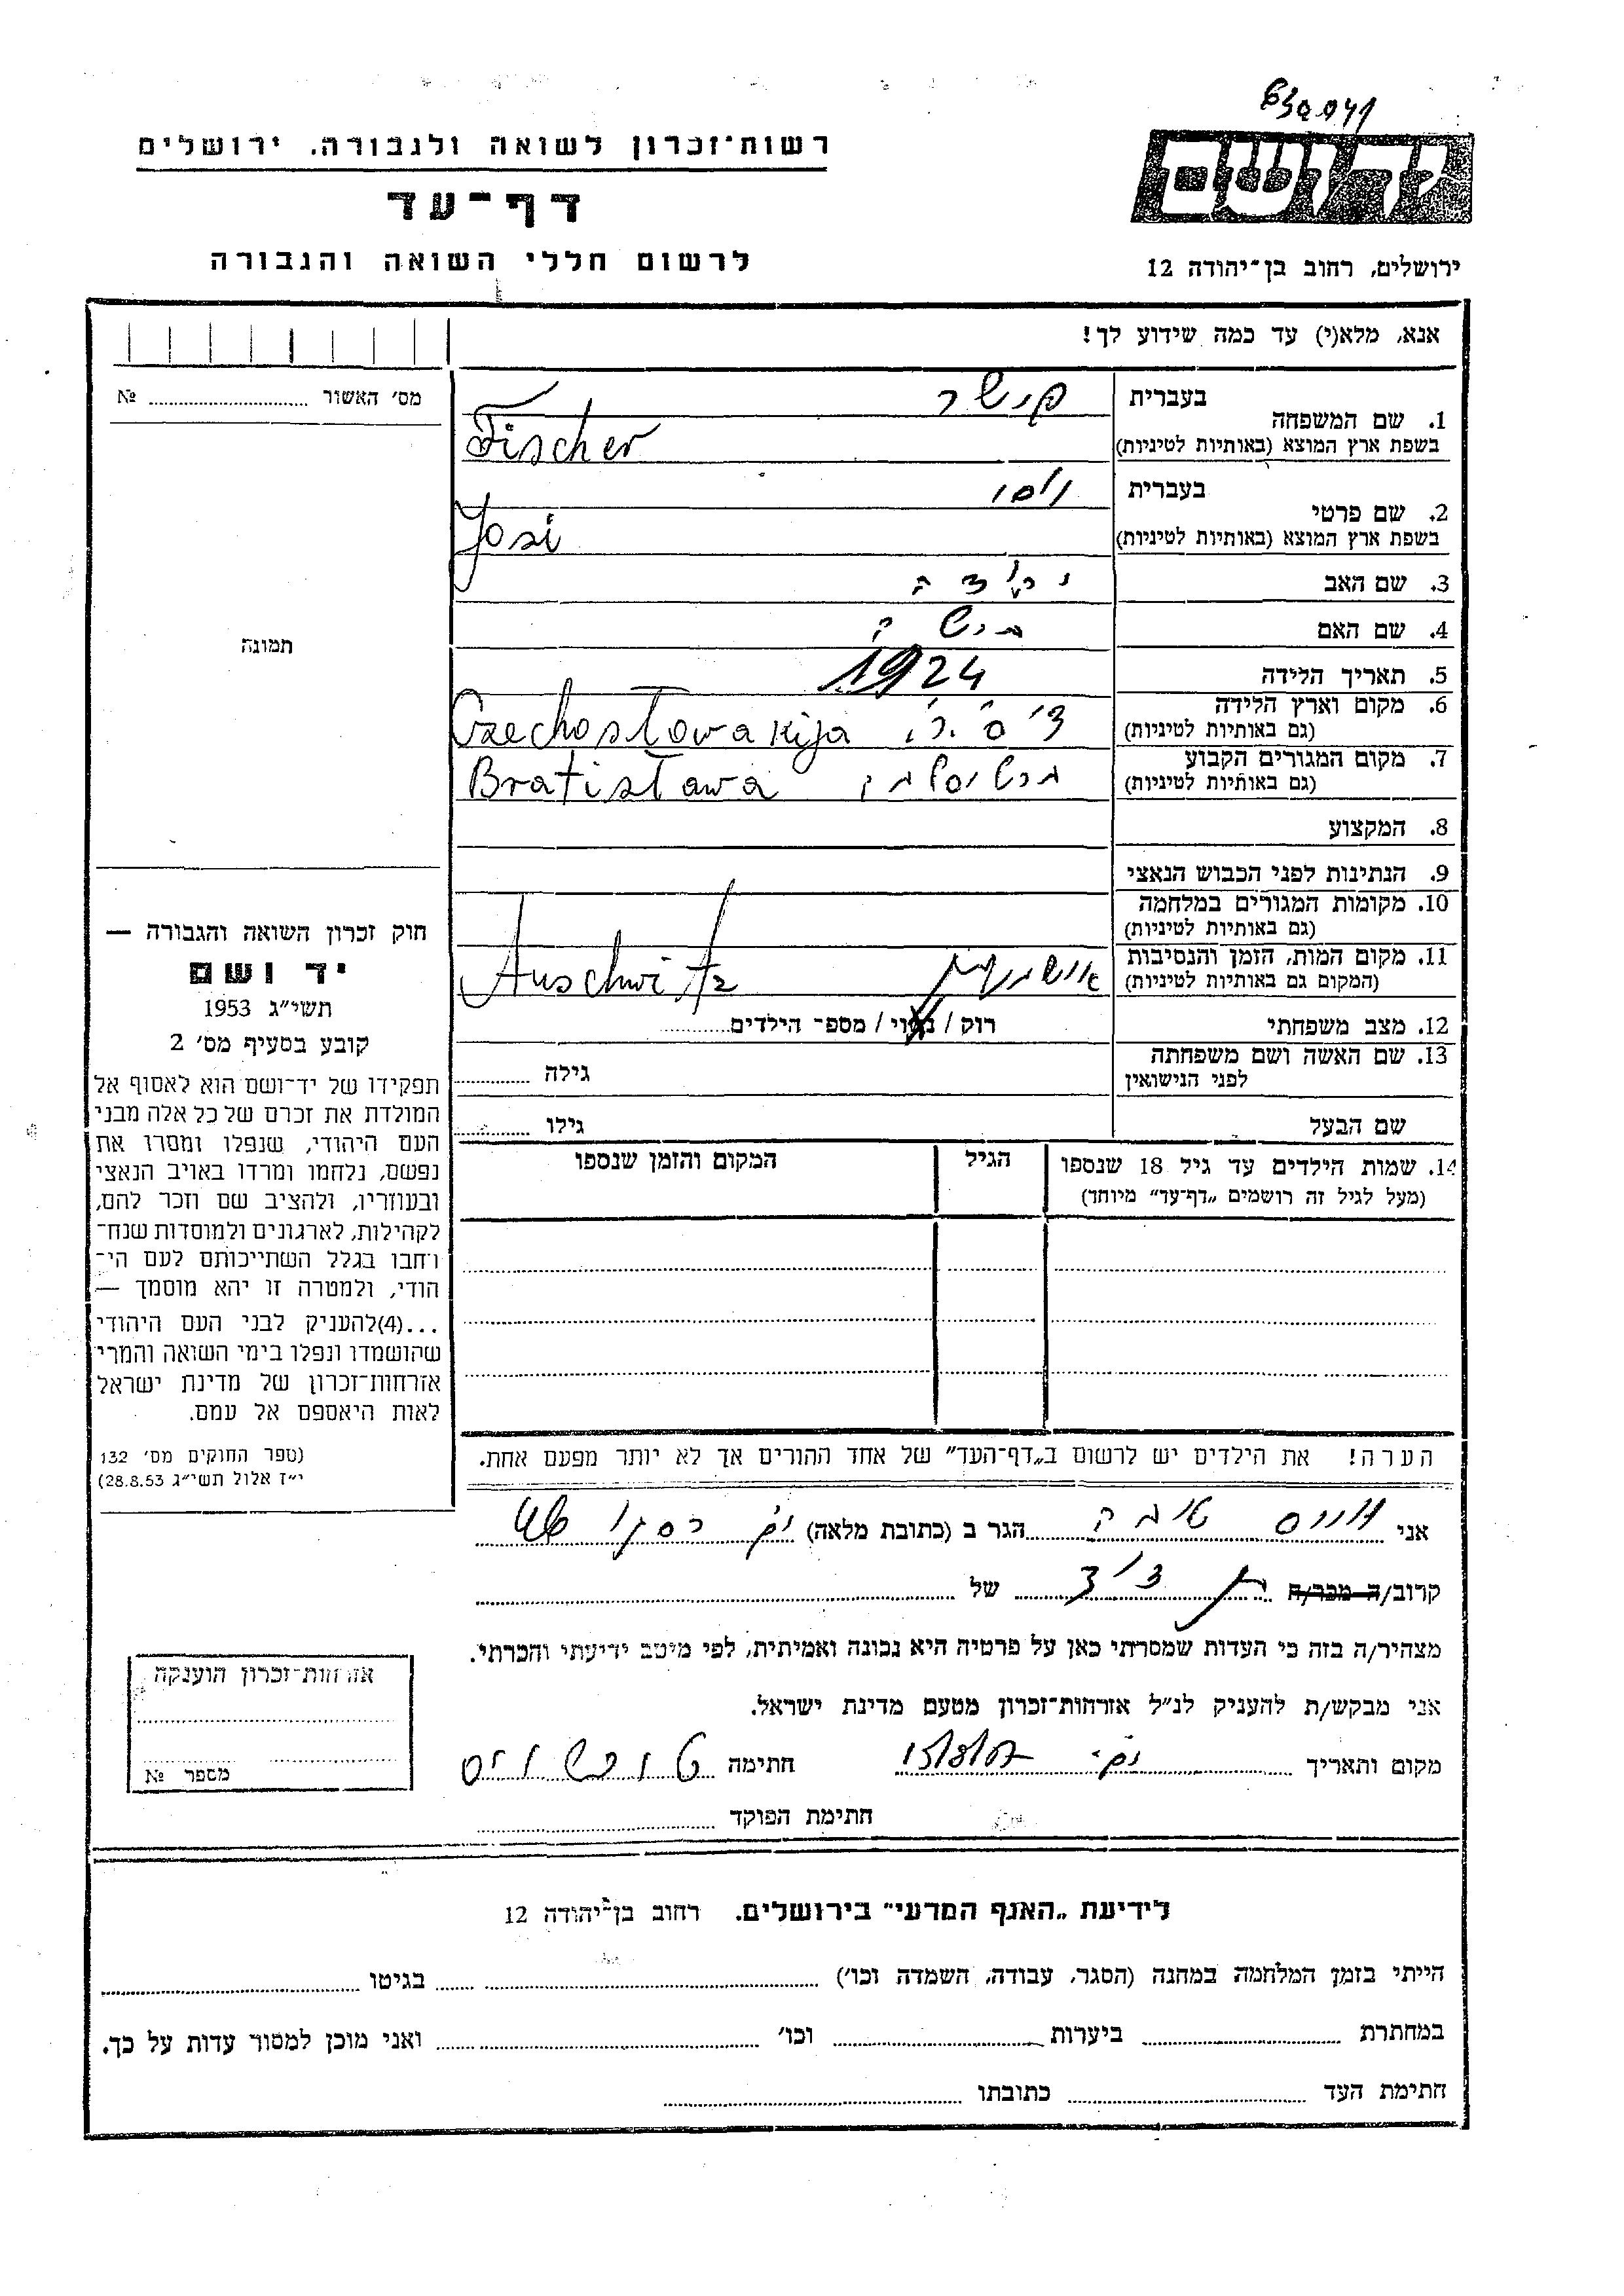 רשות־זכרון לשואה ולגבורה. ירושלים
דף־עד
לרשום חללי השואה והגבורה
יד ושם
ירושלים, רחוב בן־יהודה 12
אנא, מלא(י) עד כמה שידוע לך!
מס׳ האשור № 
1. שם המשפחה
בעברית פישר
בשפת ארץ המוצא (באותיות לטיניות) Fischer
2. שם פרטי
בעברית יוסי
בשפת ארץ המוצא (באותיות לטיניות) Josi
3. שם האב
4. שם האם
5. תאריך הלידה 1924
6. מקום וארץ הלידה
(גם באותיות לטיניות) Czechosłowakija
7. מקום המגורים הקבוע
(גם באותיות לטיניות) Bratisława
8. המקצוע
9. הנתינות לפני הכבוש הנאצי
10. מקומות המגורים במלחמה
(גם באותיות לטיניות)
11. מקום המות, הזמן והנסיבות
(המקום גם באותיות לטיניות) אושוויץ Auschwitz
12. מצב משפחתי רוק / נשוי / מספר הילדים
13. שם האשה ושם משפחתה
לפני הנישואין גילה
שם הבעל גילו
14. שמות הילדים עד גיל 18 שנספו הגיל המקום והזמן שנספו
(מעל לגיל זה רושמים „דף־עד״ מיוחד)
הערה! את הילדים יש לרשום ב„דף־העד״ של אחד ההורים אך לא יותר מפעם אחת.
תמונה
חוק זכרון השואה והגבורה —
יד ושם
תשי״ג 1953
קובע בסעיף מס׳ 2
תפקידו של יד־ושם הוא לאסוף אל
המולדת את זכרם של כל אלה מבני
העם היהודי, שנפלו ומסרו את
נפשם, נלחמו ומרדו באויב הנאצי
ובעוזריו, ולהציב שם וזכר להם,
לקהילות, לארגונים ולמוסדות שנח־
רבו בגלל השתייכותם לעם הי־
הודי, ולמטרה זו יהא מוסמך —
...(4)להעניק לבני העם היהודי
שהושמדו ונפלו בימי השואה והמרי
אזרחות־זכרון של מדינת ישראל
לאות היאספם אל עמם.
(ספר החוקים מס׳ 132
י״ז אלול תשי״ג 28.8.53)
אני הגר ב (כתובת מלאה)
קרוב/ה מכר/ה של
מצהיר/ה בזה כי העדות שמסרתי כאן על פרטיה היא נכונה ואמיתית, לפי מיטב ידיעתי והכרתי.
אני מבקש/ת להעניק לנ״ל אזרחות־זכרון מטעם מדינת ישראל.
מקום ותאריך חתימה
חתימת הפוקד
אזרחות־זכרון הוענקה
מספר №
לידיעת „האגף המדעי״ בירושלים. רחוב בן־יהודה 12
הייתי בזמן המלחמה במחנה (הסגר, עבודה, השמדה וכו׳) בגיטו
במחתרת ביערות וכו׳ ואני מוכן למסור עדות על כך.
חתימת העד כתובתו